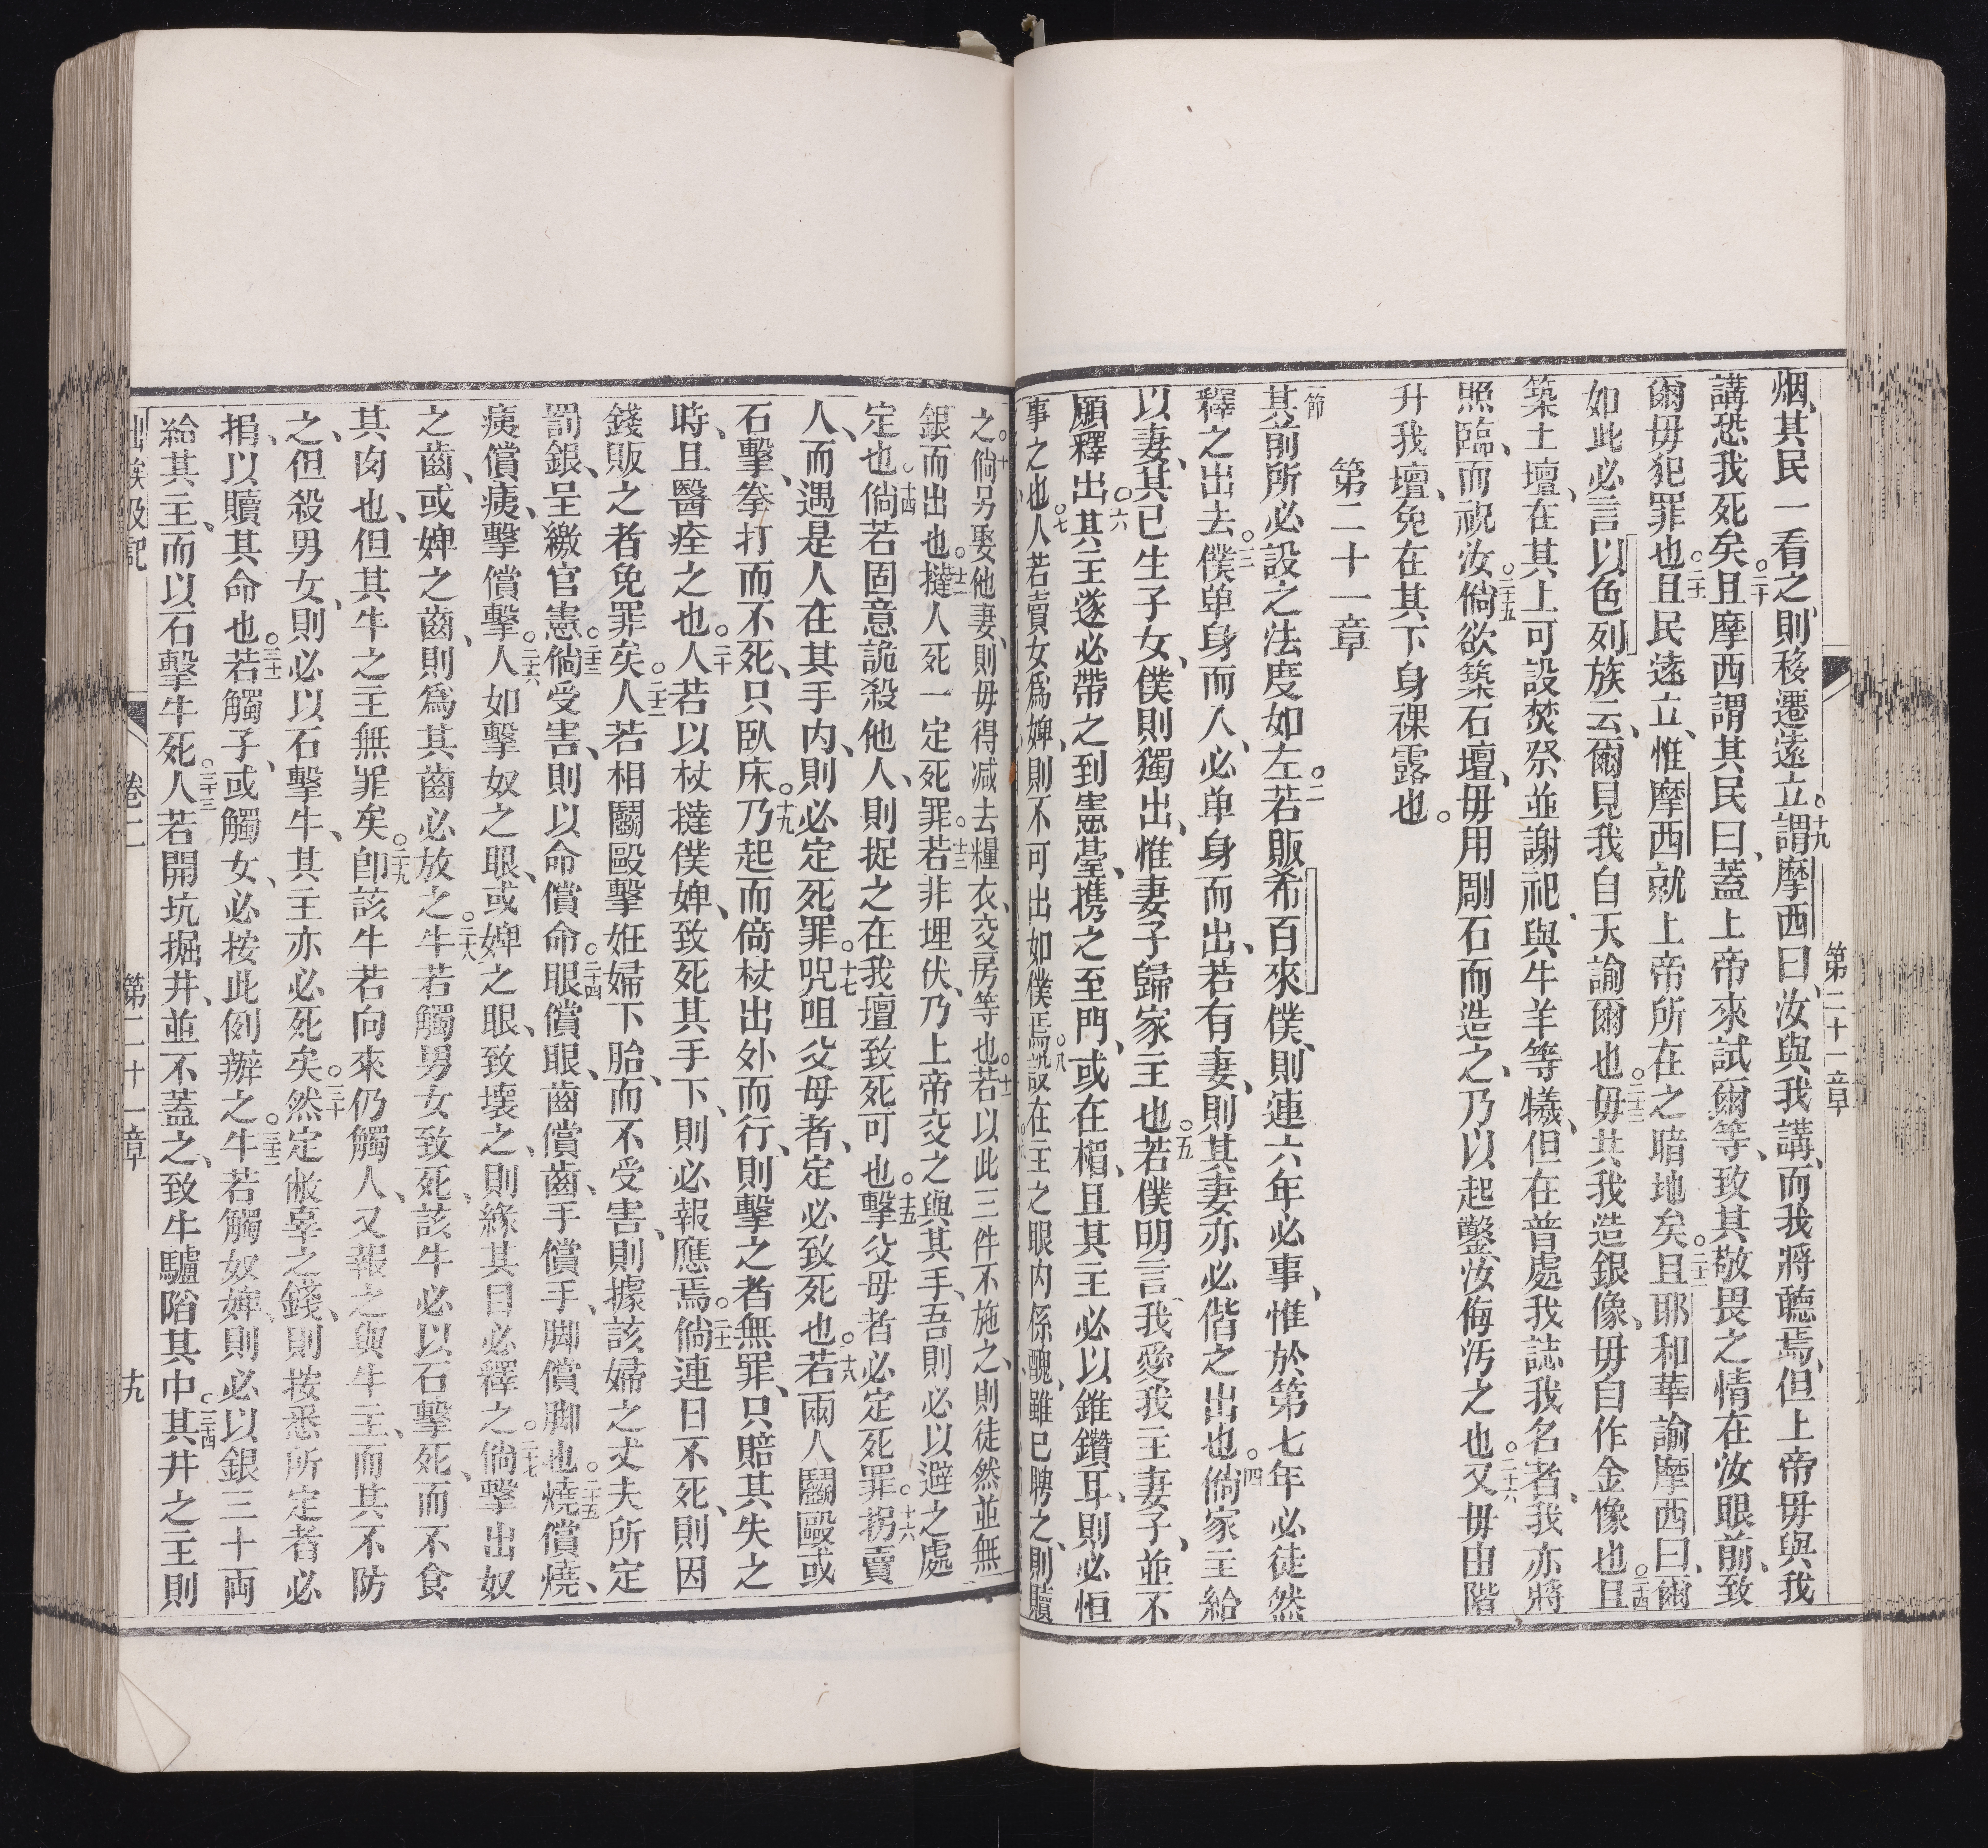 第二十一章
烟、其民一看之、則移遷遠立。十九謂摩西曰、汝與我講、而我將聽焉、但上帝毋與我
講、恐我死矣。二十且摩西謂其民曰、蓋上帝來試爾等、致其敬畏之情在汝眼前、致
爾毋犯罪也。二十且民遠立、惟摩西就上帝所在之暗地矣。二十二且耶和華諭摩西曰、爾
如此必言以色列族云、爾見我自天諭爾也。二十三毋共我造銀像、毋自作金像也。二十四且
築土壇、在其上可設焚祭並謝祀、與牛羊等犧、但在普處我誌我名者、我亦將
照臨、而祝汝。二十五倘欲築石壇、毋用剛石而造之、乃以起鑿、汝侮污之也。二十六又毋由階
升我壇、免在其下身裸露也。
第二十一章
一節其前所必設之法度如左。二若販希百來僕、則連六年必事、惟於第七年必徒然
釋之出去。三僕单身而入、必单身而出、若有妻、則其妻亦必偕之出也。四倘家主給
以妻、其已生子女、僕則獨出、惟妻子歸家主也。五若僕明言、我愛我主妻子、並不
願釋出。六其主遂必帶之到憲臺、携之至門、或在楣、且其主必以錐鑽耳、則必恒
事之也。七人若賣女爲婢、則不可出如僕焉。八設在主之眼内係醜、雖已聘之、則贖
之。十倘另娶他妻、則毋得減去糧衣、交房等也。十一若以此三件不施之、則徒然並無
銀而出也。十二撻人死一定死罪。十三若非埋伏、乃上帝交之與其手、吾則必以避之處
定也。十四倘若固意詭殺他人、則捉之在我壇致死可也。十五擊父母者必定死罪。十六拐賣
人、而遇是人在其手内、則必定死罪。十七咒咀父母者、定必致死也。十八若兩人鬬毆、或
石擊、拳打而不死、只臥床。十九乃起而倚杖出外而行、則擊之者無罪、只賠其失之
時、且醫痊之也。二十人若以杖撻僕婢、致死其手下、則必報應焉。二十一倘連日不死、則因
錢販之者免罪矣。二十二人若相鬬毆擊姙婦下胎、而不受害、則據該婦之丈夫所定
罰銀、呈繳官憲。二十三倘受害、則以命償命。二十四眼償眼、齒償齒、手償手、脚償脚也。二十五燒償燒、
痍償痍、擊償擊。二十六人如擊奴之眼、或婢之眼、致壞之、則緣其目必釋之。二十七倘擊出奴
之齒、或婢之齒、則爲其齒必放之。二十八牛若觸男女致死、該牛必以石擊死、而不食
其肉也、但其牛之主無罪矣。二十九卽該牛若向來仍觸人、又報之與牛主、而其不防
之、但殺男女、則必以石擊牛、其主亦必死矣。三十然定敝辜之錢、則按悉所定者必
捐、以贖其命也。三十一若觸子、或觸女、必按此例辦之。三十二牛若觸奴婢、則必以銀三十両
給其主、而以石擊牛死。三十三人若開坑掘井、並不蓋之、致牛驢陷其中。三十四其井之主則
出埃及記 卷二 第二十一章 十九